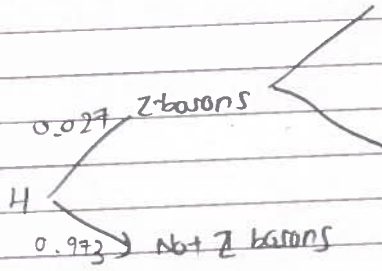 0.027 Z-basons
H
0.973 Not Z basons